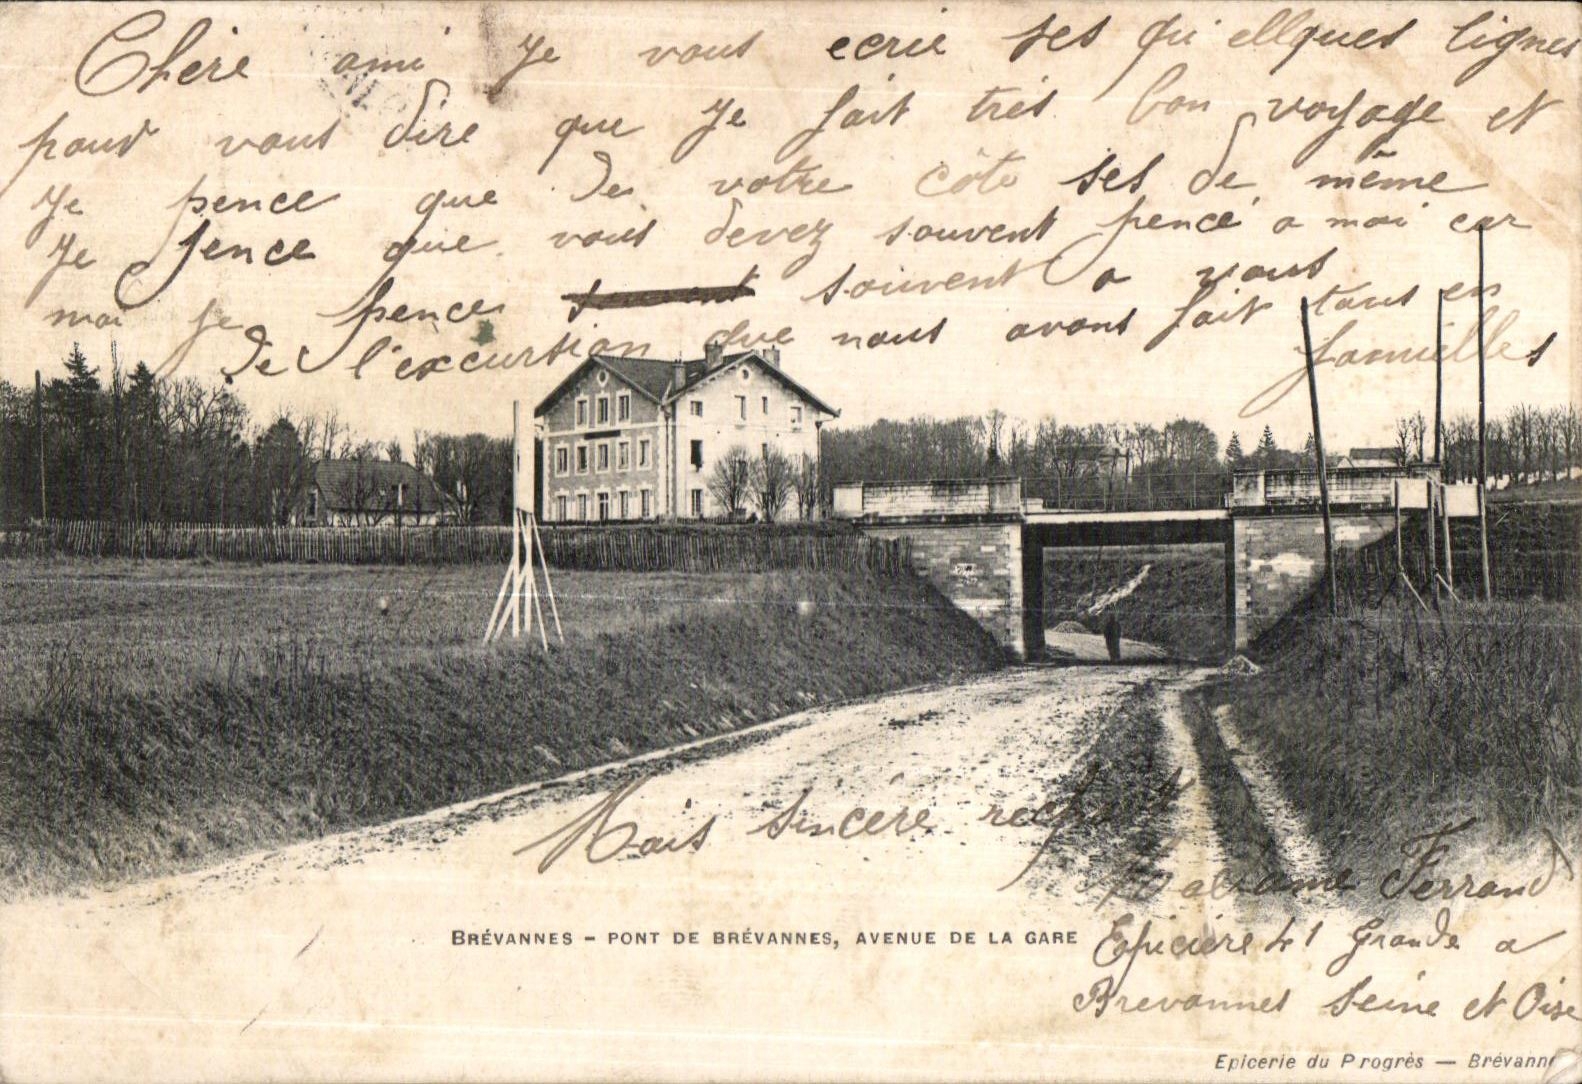 Chère ami Je vous ecrie ses qui ellques lignes
pour vous dire que Je fait très bon voyage et
Je pence que de votre côte ses de même
Je pence que vous devez souvent pencé a moi car
moi je pence souvent souvent a vous
de l'excursion que nous avons fait tous en
familles
Mais sincére
Madame Ferrand
Epiciere 41 Grande a
Brevannes Seine et Oise
BRÉVANNES – PONT DE BRÉVANNES, AVENUE DE LA GARE
Epicerie du Progrès — Brévanne